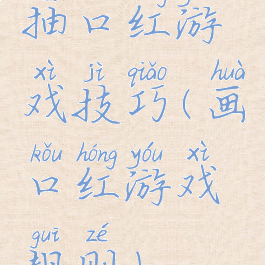 抽口红游
xì jì qiǎo huà
戏技巧(画
kǒu hóng yóu xì
口红游戏
guī zé
规则)